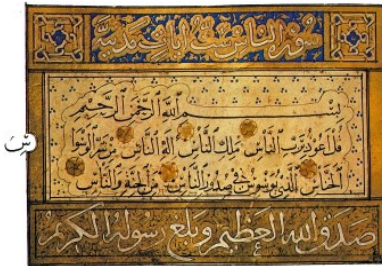 سورة الناس ست ايات مدنية
بِسْمِ اللهِ الرَّحْمٰنِ الرَّحِيمِ
قُلْ اَعُوذُ بِرَبِّ النَّاسِ مَلِكِ النَّاسِ اِلٰهِ النَّاسِ مِنْ شَرِّ الْوَسْوَاسِ
الْخَنَّاسِ الَّذِي يُوَسْوِسُ فِي صُدُورِ النَّاسِ مِنَ الْجِنَّةِ وَالنَّاسِ
صدق الله العظيم وبلغ رسوله الكريم